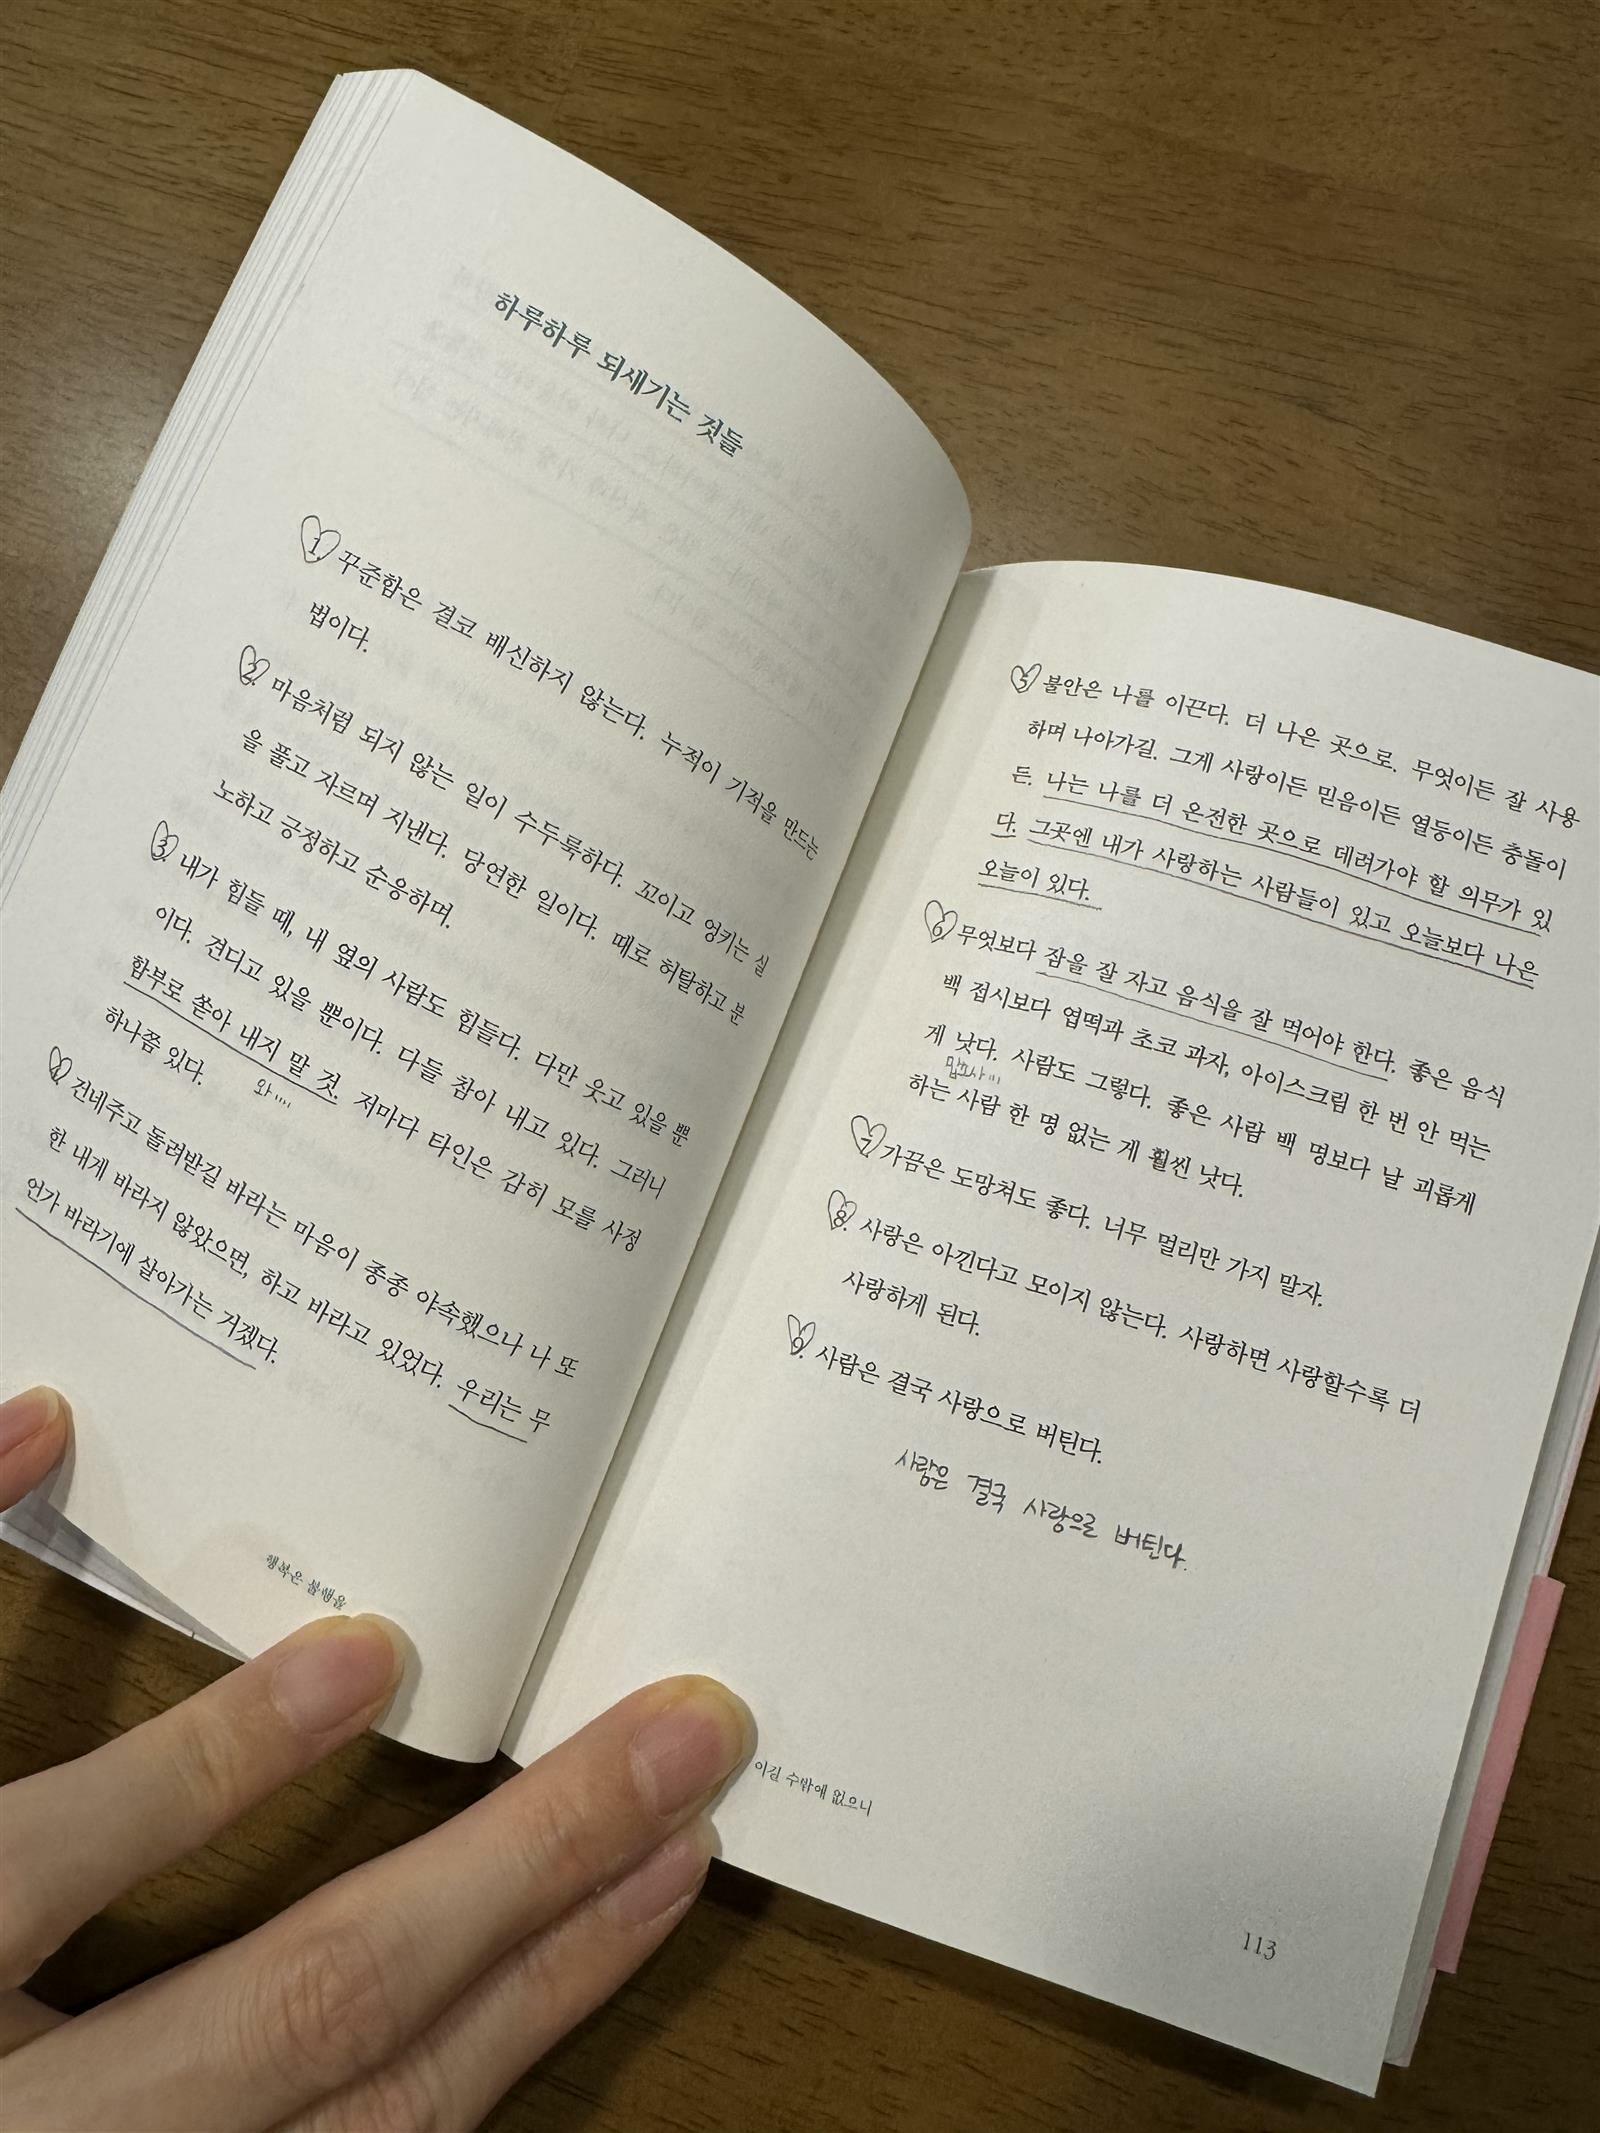 하루하루 되새기는 것들
1. 꾸준함은 결코 배신하지 않는다. 누적이 기적을 만드는
법이다.
2. 마음처럼 되지 않는 일이 수두룩하다. 꼬이고 엉키는 실
을 풀고 자르며 지낸다. 당연한 일이다. 때로 허탈하고 분
노하고 긍정하고 순응하며.
3. 내가 힘들 때, 내 옆의 사람도 힘들다. 다만 웃고 있을 뿐
이다. 견디고 있을 뿐이다. 다들 참아 내고 있다. 그러니
함부로 쏟아 내지 말 것. 저마다 타인은 감히 모를 사정
하나쯤 있다.
와....
4. 건네주고 돌려받길 바라는 마음이 종종 야속했으나 나 또
한 내게 바라지 않았으면, 하고 바라고 있었다. 우리는 무
언가 바라기에 살아가는 거겠다.
행복은 불행을
5. 불안은 나를 이끈다. 더 나은 곳으로. 무엇이든 잘 사용
하며 나아가길. 그게 사랑이든 믿음이든 열등이든 충돌이
든. 나는 나를 더 온전한 곳으로 데려가야 할 의무가 있
다. 그곳엔 내가 사랑하는 사람들이 있고 오늘보다 나은
오늘이 있다.
6. 무엇보다 잠을 잘 자고 음식을 잘 먹어야 한다. 좋은 음식
백 접시보다 엽떡과 초코 과자, 아이스크림 한 번 안 먹는
게 낫다. 사람도 그렇다. 좋은 사람 백 명보다 날 괴롭게
하는 사람 한 명 없는 게 훨씬 낫다.
7. 가끔은 도망쳐도 좋다. 너무 멀리만 가지 말자.
8. 사랑은 아낀다고 모이지 않는다. 사랑하면 사랑할수록 더
사랑하게 된다.
9. 사람은 결국 사랑으로 버틴다.
사람은 결국 사랑으로 버틴다.
이길 수밖에 없으니
113